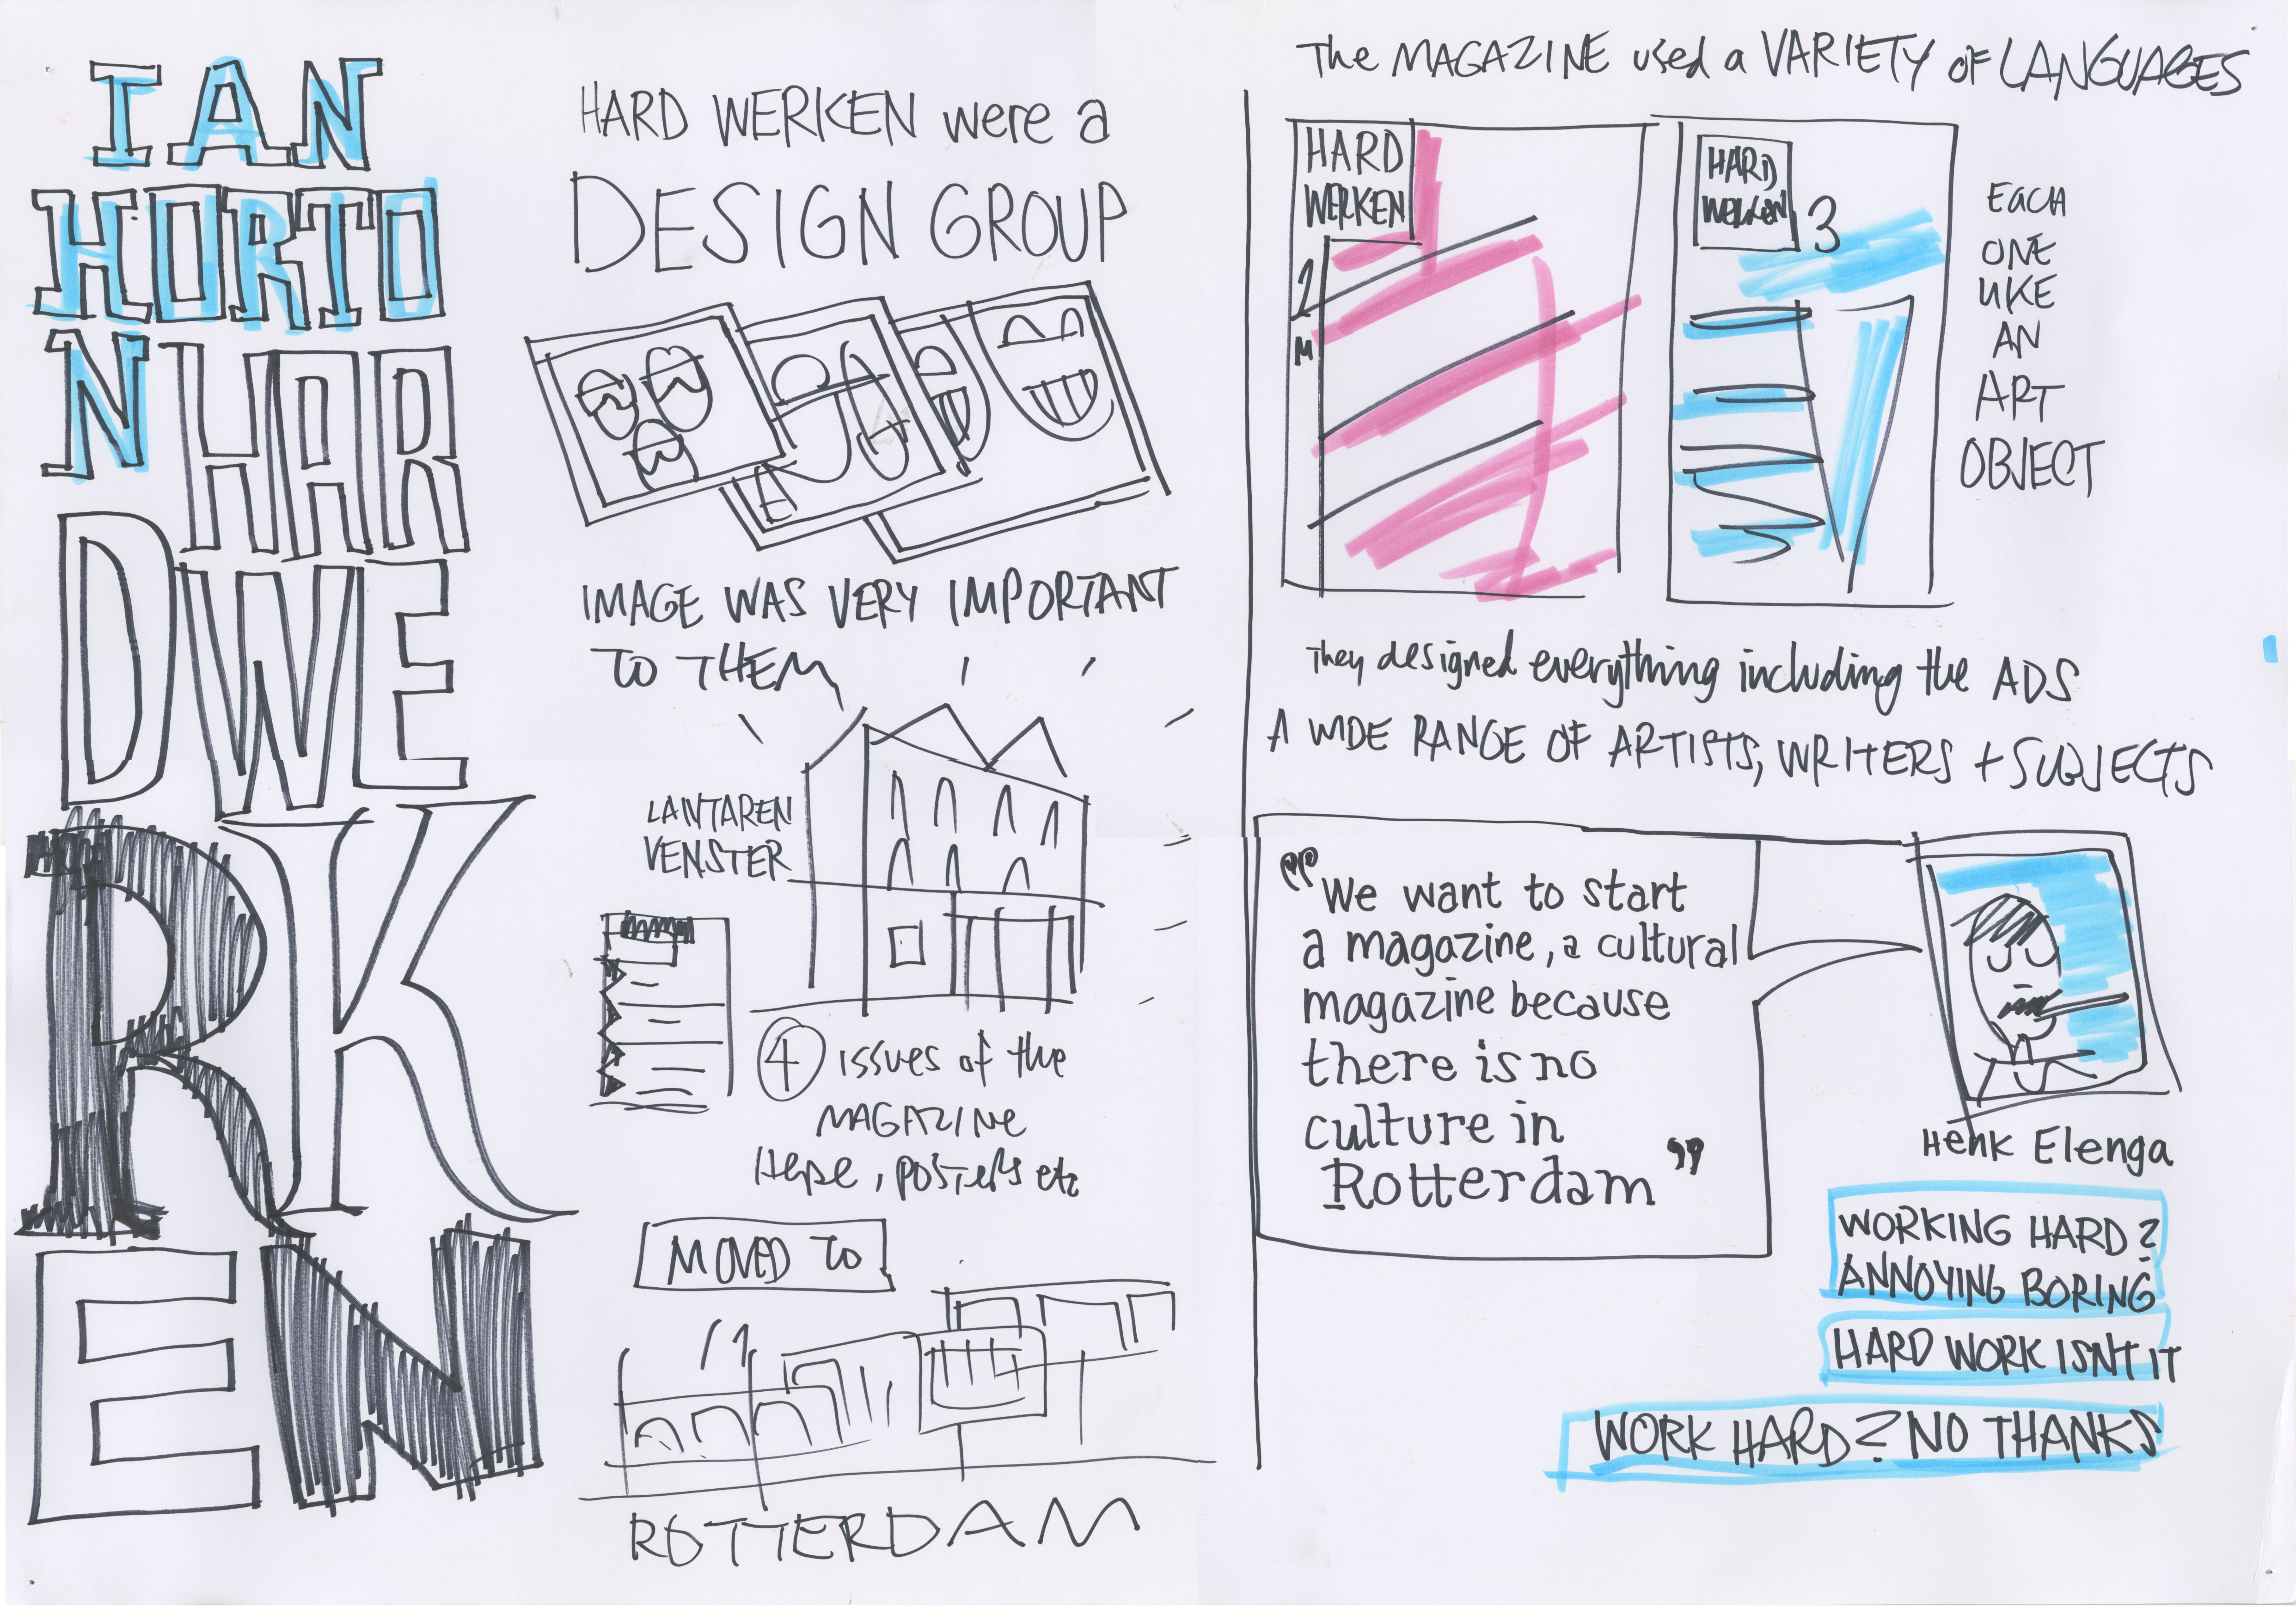 IAN
HORTO
N HAR
DWE
RK
EN
HARD WERKEN were a
DESIGN GROUP
IMAGE WAS VERY IMPORTANT
TO THEM
LANTAREN
VENSTER
4 issues of the
MAGAZINE
Here, posters etc
MOVED TO
ROTTERDAM
The MAGAZINE used a VARIETY of LANGUAGES
HARD
WERKEN
2
HARD
WERKEN 3
EACH
ONE
LIKE
AN
ART
OBJECT
They designed everything including the ADS
A WIDE RANGE OF ARTISTS, WRITERS + SUBJECTS
"We want to start
a magazine, a cultural
magazine because
there is no
culture in
Rotterdam"
Henk Elenga
WORKING HARD?
ANNOYING BORING
HARD WORK ISNT IT
WORK HARD? NO THANKS